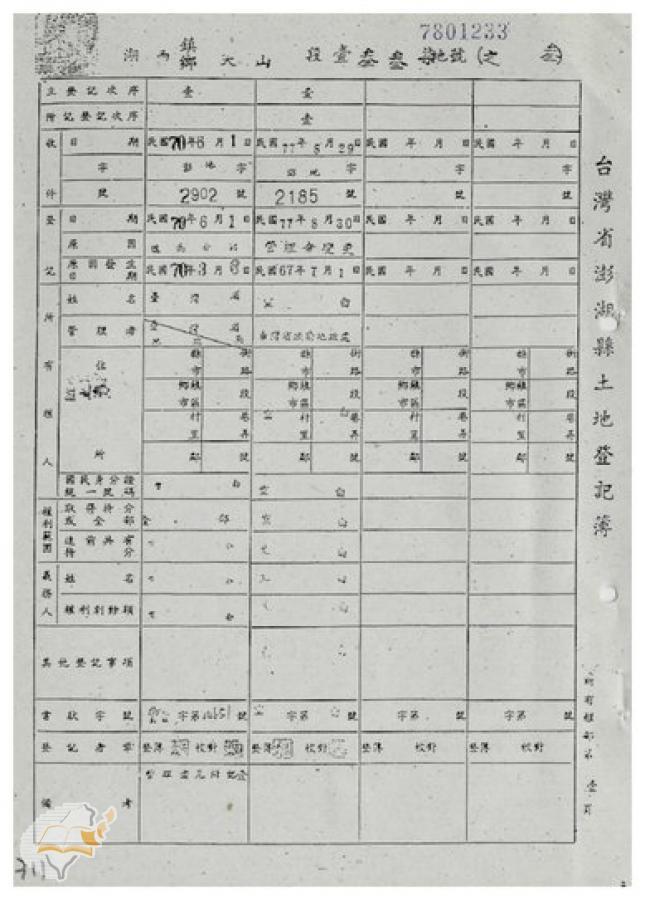 7801233
湖西 鎮鄉 大山 段壹叁叁 地號(之 叁)
台灣省澎湖縣土地登記簿
主登記次序 壹 壹
附記登記次序 壹
收件 日期 民國70年6月1日 民國77年8月29日 民國 年 月 日 民國 年 月 日
字 字 地字 字 字
號 2902號 2185號 號 號
登記 日期 民國70年6月1日 民國77年8月30日 民國 年 月 日 民國 年 月 日
原因 管理者變更
原因發生日期 民國70年3月6日 民國67年7月1日 民國 年 月 日 民國 年 月 日
所有權人 姓名 臺灣省 空白
管理者 台灣省政府地政處
住所 縣市 街路 縣市 街路 縣市 街路 縣市 街路
鄉鎮市區 段 鄉鎮市區 段 鄉鎮市區 段 鄉鎮市區 段
村里 巷弄 村里 巷弄 村里 巷弄 村里 巷弄
鄰 號 鄰 號 鄰 號 鄰 號
國民身分證統一號碼 空白
權利範圍 取得持分或全部 全部 空白
連前共有持分
義務人 姓名
權利剩餘額
其他登記事項
書狀字號 字第 號 字第 號 字第 號 字第 號
登記者章 登簿 校對 登簿 校對 登簿 校對 登簿 校對
備考 管理者見附記壹
所有權部第 壹 頁
711